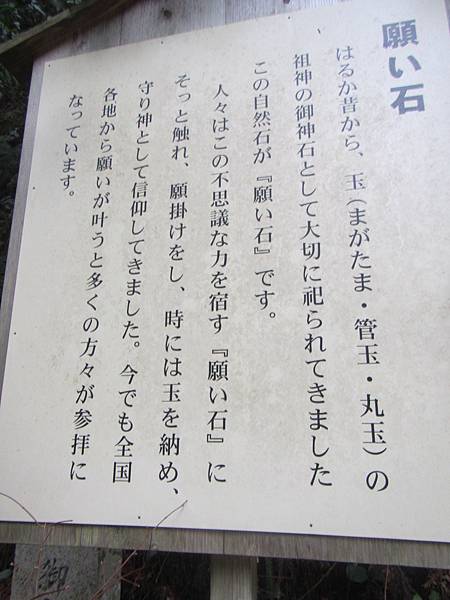 願い石
はるか昔から、玉(まがたま・管玉・丸玉)の
祖神の御神石として大切に祀られてきました
この自然石が『願い石』です。
人々はこの不思議な力を宿す『願い石』に
そっと触れ、願掛けをし、時には玉を納め、
守り神として信仰してきました。今でも全国
各地から願いが叶うと多くの方々が参拝に
なっています。
御